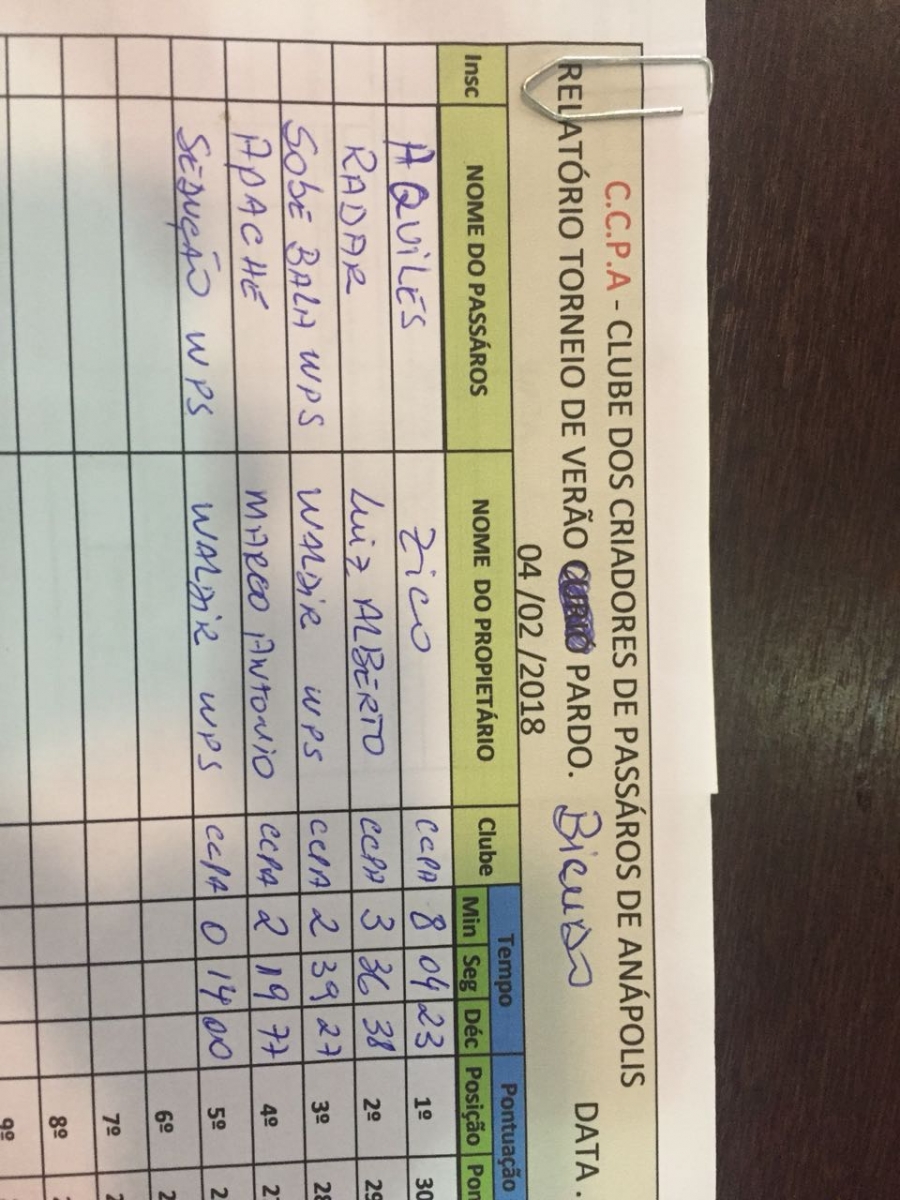 C.C.P.A - CLUBE DOS CRIADORES DE PASSÁROS DE ANÁPOLIS
RELATÓRIO TORNEIO DE VERÃO PARDO. Bicudo DATA.
04 /02 /2018
Insc NOME DO PASSÁROS NOME DO PROPIETÁRIO Clube Tempo Pontuação
Min Seg Déc Posição Pon
AQUILES ZICO CCPA 8 04 23 1º 30
RADAR LUIZ ALBERTO CCPA 3 36 38 2º 29
SOBE BALA WPS WALDIR WPS CCPA 2 39 27 3º 28
APACHE MARCO ANTONIO CCPA 2 19 77 4º 2
SEDUÇÃO WPS WALDIR WPS CCPA 0 14 00 5º 2
6º 2
7º 2
8º
9º